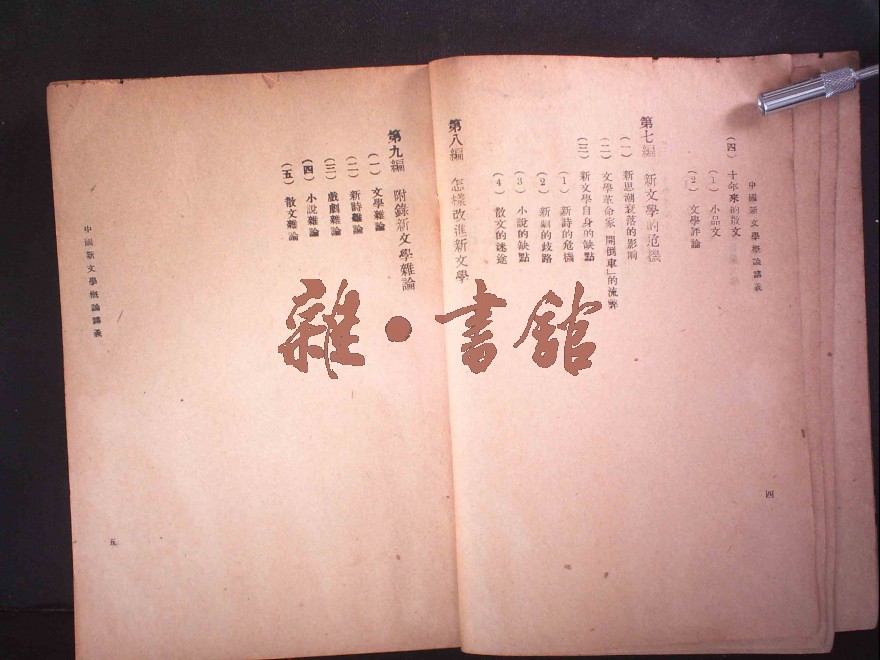 中國新文學概論講義
(四) 十年來的散文
(1) 小品文
(2) 文學評論
第七編 新文學的危機
(一) 新思潮衰落的影响
(二) 文學革命家「開倒車」的流弊
(三) 新文學自身的缺點
(1) 新詩的危機
(2) 新劇的歧路
(3) 小說的缺點
(4) 散文的迷途
四
第八編 怎樣改進新文學
第九編 附錄新文學雜論
(一) 文學雜論
(二) 新詩雜論
(三) 戲劇雜論
(四) 小說雜論
(五) 散文雜論
中國新文學概論講義
五
雜●書館